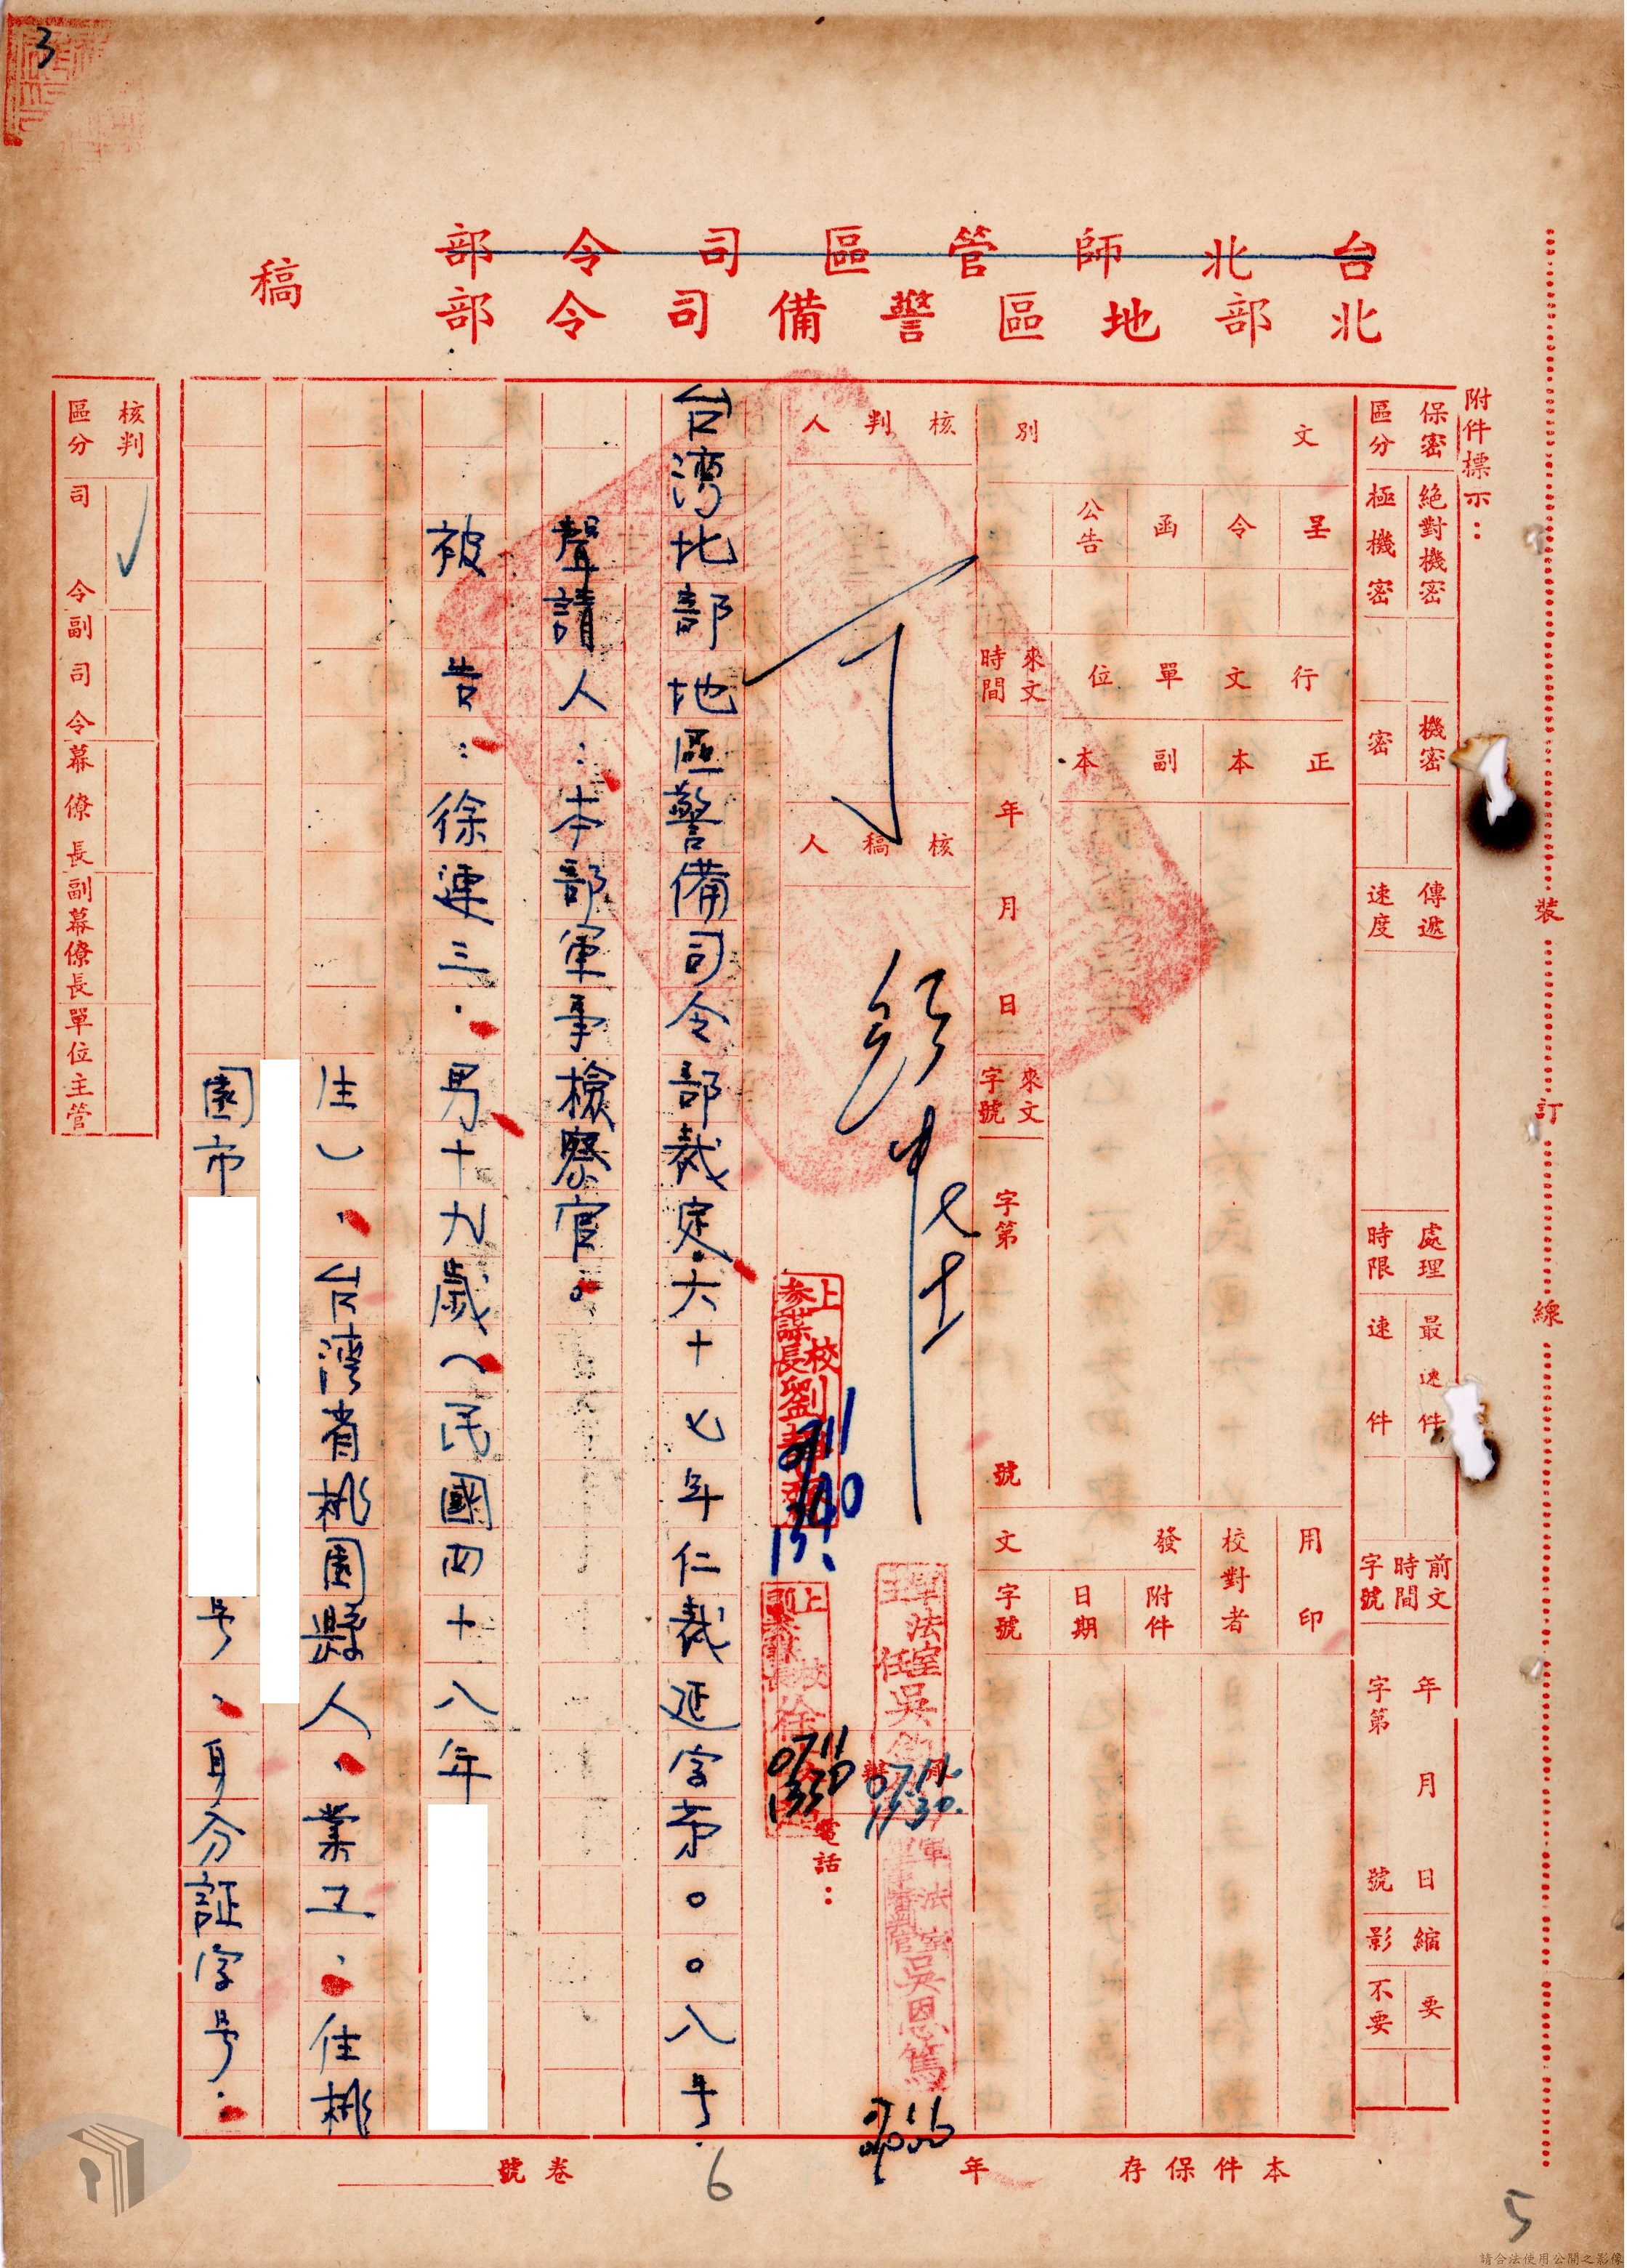 3
台北師管區司令部
北部地區警備司令部
稿
附件標示：
保密區分
絕對機密
極機密
機密
密
傳遞速度
處理時限
最速件
速件
前文時間字號
年月日
字第號
縮影
要
不要
文別
呈
令
函
公告
行文單位
正本
副本
來文時間
年月日
來文字號
字第號
用印
校對者
發文
附件
日期
字號
核判人
核稿人
電話：
軍法室主任吳
軍法室軍事審判官吳恩篤
上校參謀長劉
0711
1330
台湾北部地區警備司令部裁定.六十七年仁裁延字第〇〇八号.
聲請人：本部軍事檢察官。
被告：徐連三.男十九歲（民國四十八年
生）、台湾省桃園縣人、業工、住桃
園市
号、身分証字号.
核判區分
司令
副司令
幕僚長
副幕僚長
單位主管
裝
訂
線
本件保存年
卷號
6
5
請合法使用公開之影像